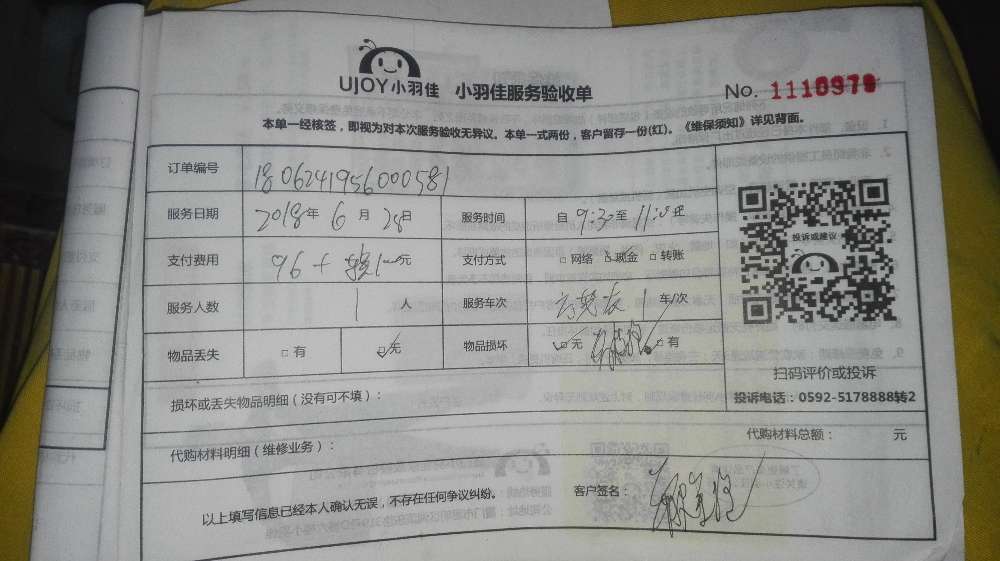 UJOY小羽佳 小羽佳服务验收单 No. 1110979
本单一经核签，即视为对本次服务验收无异议。本单一式两份，客户留存一份(红)。《维保须知》详见背面。
订单编号 1806241956000581
服务日期 2018年 6 月 28日 服务时间 自 9:30至 11:00止
支付费用 96+ 元 支付方式 □网络 ☑现金 □转账
服务人数 1 人 服务车次 1 车/次
物品丢失 □有 ☑无 物品损坏 ☑无 □有
投诉或建议
扫码评价或投诉
投诉电话：0592-5178888转2
损坏或丢失物品明细（没有可不填）：
代购材料明细（维修业务）： 代购材料总额： 元
以上填写信息已经本人确认无误，不存在任何争议纠纷。 客户签名：